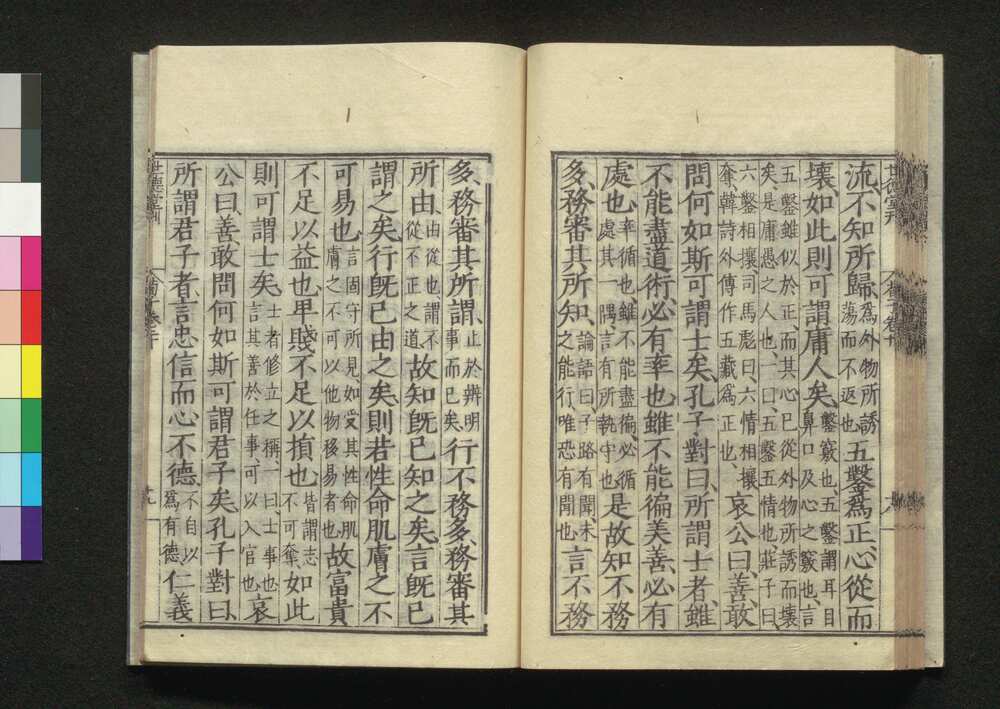 流、不知所歸、
爲外物所誘
蕩而不返也
五鑿爲正、心從而
壞、如此則可謂庸人矣、
鑿竅也、五鑿謂耳目
鼻口及心之竅也、言
五鑿雖似於正、而其心已從外物所誘而壞
矣、是庸愚之人也、一曰、五鑿五情也、莊子曰、
六鑿相攘、司馬彪曰、六情相攘
奪、韓詩外傳作五藏爲正也、
哀公曰、善、敢
問何如斯可謂士矣、孔子對曰、所謂士者、雖
不能盡道術、必有率也、雖不能徧美善、必有
處也、
率循也、雖不能盡徧、必循
處其一隅、言有所執守也
是故知不務
多、務審其所知、
論語曰子路有聞、未
之能行、唯恐有聞也、
言不務
多、務審其所謂、
止於辨明
事而已矣
行不務多、務審其
所由、
由從也謂不
從不正之道
故知旣已知之矣、言旣已
謂之矣、行旣已由之矣、則若性命肌膚之不
可易也、
言固守所見、如愛其性命肌
膚之不可以他物移易者也
故富貴
不足以益也、卑賤不足以損也、
皆謂志
不可奪、
如此
則可謂士矣、
士者修立之稱、一曰、士事也、
言其善於任事可以入官也、
哀
公曰、善、敢問何如斯可謂君子矣、孔子對曰、
所謂君子者、言忠信而心不德、
不自以
爲有德
仁義
世德堂刊